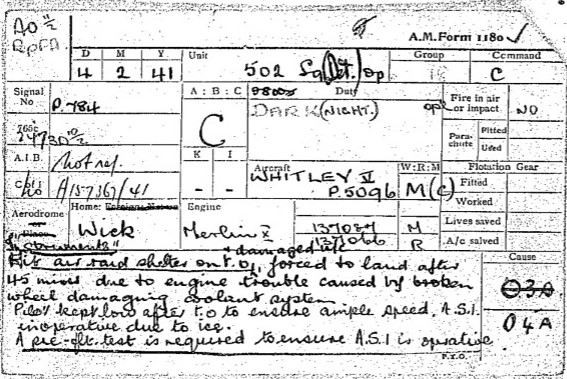 AO
A.M. Form 1180
D M Y Unit Group Command
4 2 41 502 Sq Det. Op C
Signal No P.784
A : B : C Duty
C DARK (NIGHT.) ops
Fire in air or impact NO
765c
Parachute Fitted Used
A.I.B. Not ref.
K I Aircraft W:R:M Flotation Gear
- - WHITLEY V M(c) Fitted
P.5096
A157367/41
Worked
Aerodrome Home: Wick
Engine Merlin X
M
R
Lives saved
A/c salved
"Comments"
Hit air raid shelter on T.O., forced to land after
45 mins due to engine trouble caused by broken
wheel damaging coolant system
Pilot kept low after T.O to ensure ample speed, A.S.I.
inoperative due to ice.
A pre-flt. test is required to ensure A.S.I is operative
Cause
O3A
O4A
P.T.O.